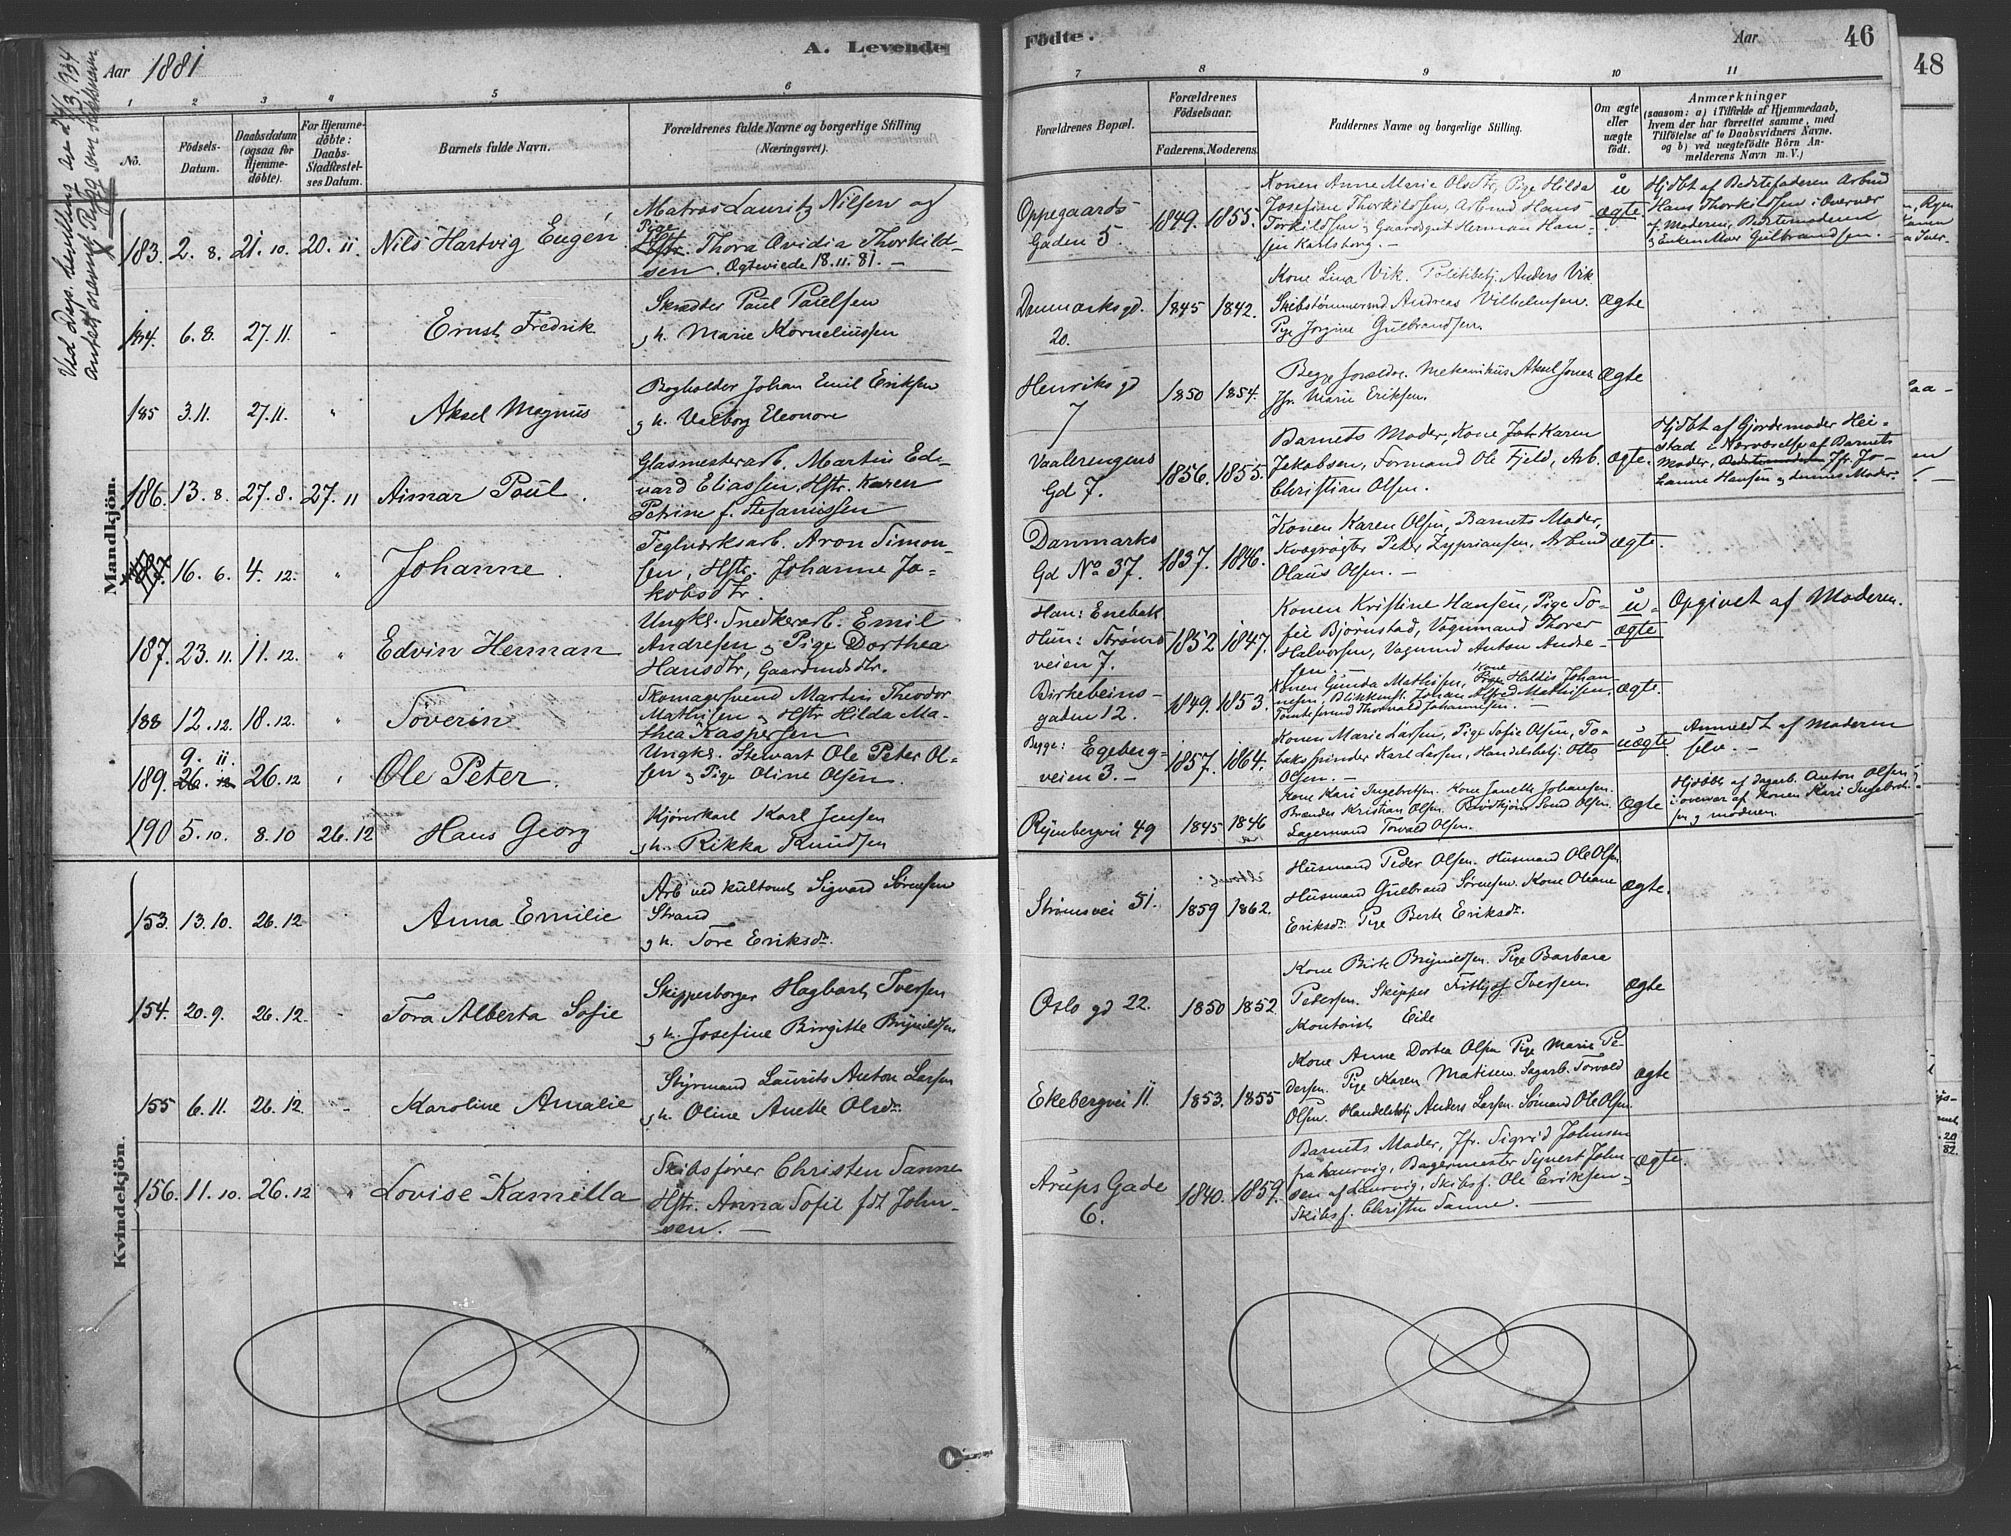 Aar 1881
A. Levende
Födte.
Aar
46
48
1 2 3 4 5 6 7 8 9 10 11
No.
Födsels-
Datum.
Daabsdatum
(ogsaa for
Hjemme-
döbte).
For Hjemme-
döbte:
Daabs-
Stadfæstel-
ses Datum.
Barnets fulde Navn.
Forældrenes fulde Navne og borgerlige Stilling
(Næringsvei).
Forældrenes Bopæl.
Forældrenes
Födselsaar.
Faderens. Moderens.
Faddernes Navne og borgerlige Stilling.
Om ægte
eller
uægte
födt.
Anmærkninger
(saasom: a) i Tilfælde af Hjemmedaab,
hvem der har forrettet samme, med
Tilföielse af to Daabsvidners Navne.
og b) ved uægtefödte Börn An-
melderens Navn m. V.)
Mandkjön.
183. 2. 8. 21. 10. 20. 11 Nils Hartvig Eugén
Matros Lauritz Nilsen og
Pige
Thora Ovidia Thorkild-
sen. Ægteviede 18.11.81. —
Oppegaards
Gaden 5.
1849. 1855.
Konen Anne Marie Olsdtr, Pige Hilda
Josefine Thorkildsen, Arbmd Hans
Torkildsen & Gaardsgut Herman Han-
sen Karlsborg. —
u
ægte.
Hjdbt af Bedstefaderen Arbmd
Hans Thorkildsen i Overvær
af Moderen, Bedstemoderen
& Enken Mar Gulbrandsen. —
184. 6. 8. 27. 11. - Ernst Fredrik
Skrædder Paul Paulsen
& h. Marie Korneliussen
Danmarks gd.
20.
1845 1842.
Kone Lina Vik. Politibetj. Anders Vik
Skibstømmermd Andreas Vilhelmsen.
Pige Jørgine Gulbrandsen.
Ægte
185 3. 11. 27. 11. " Aksel Magnus
Bogholder Johan Emil Eriksen
& h. Valborg Eleonore
Henriks gd
7
1850 1854.
Begge forældre. Mekanikus Aksel Jones
Jfr. Marie Eriksen.
Ægte
186. 13. 8. 27. 8. 27. 11 Aimar Poul.
Glasmesterarb. Martin Ed-
vard Eliassen, Hstr. Karen
Petrine f. Stefanussen
Vaalerengens
Gd 7.
1856. 1855.
Barnets Moder, Kone Karen
Jakobsen, Formand Ole Fjeld, Arb.
Christian Olsen.
ægte.
Hjdbt af Gjordemoder Hei-
stad i Nærværelse af Barnets
Moder, Bedstemoderen Jfr. Jo-
hanne Hansen & dennes Moder.
187 16. 6. 4. 12. " Johanne
Teglværksarb. Aron Simon-
sen, Hstr. Johanne Ja-
kobsdtr.
Danmarks
Gd No 37.
1837. 1846.
Konen Karen Olsen, Barnets Moder,
Kvægrøgter Peter Zypriansen, Arbmd
Olaus Olsen. —
ægte.
187. 23. 11. 11. 12. " Edvin Herman
Ungkl. Snedkerarb. Emil
Andresen & Pige Dorthea
Hansdtr, Gaardmdsdtr.
Han: Enebak
Hun: Strøms
veien 7.
1852 1847.
Konen Kristine Hansen, Pige So-
fie Bjørnstad, Vognmand Thorer
Halvorsen, Vognmd Anton Andre-
sen.
u-
ægte
Opgivet af Moderen.
188 12. 12. 18. 12. " Søverin
Skomagersvend Martin Theodor
Mathisen & Hstr Hilda Ma-
thea Kaspersen
Birkebeins-
gaden 12.
1849. 1853.
Konen Gunda Mathisen, Kone Haldis Johan-
nesen, Blikkensl. Johan Alfred Mathisen,
Tomtesvend Thorvald Johannesen. —
ægte.
189. 9. 11. 26. 12 26. 12 " Ole Peter.
Ungkl. Stewart Ole Peter Ol-
sen & Pige Oline Olsen.
Begge: Egeberg-
veien 3. —
1857. 1864.
Konen Marie Larsen, Pige Sofie Olsen, To-
baksspinder Karl Larsen, Handelsbetj. Otto
Olsen. —
uægte
Anmeldt af Moderen
selv. —
190 5. 10. 8. 10 26. 12 Hans Georg
Kjørerkarl Karl Jensen
& h. Rikka Knudsen
Ryenbergvei 49
1845 1846
Kone Kari Ingebretsen. Kone Janette Johansen.
Brænder Kristian Olsen. Olsen.
Lagermand Torvald Olsen.
ægte
Hjdöbt af dagarb. Anton Olsen
i overvær af konen Kari Ingebret-
sen & moderen.
Kvindekjön.
153. 13. 10. 26. 12. Anna Emilie
Arb ved Sigvard Sørensen
Strand
& h. Tore Eriksdr.
Strømsvei 51.
1859 1862.
Husmand Peder Olsen. Husmand Ole Olsen
Husmand Gulbrand Sørensen. Kone Oliane
Eriksdr. Pige Berte Eriksdr.
ægte.
154. 20. 9. 26. 12. - Tora Alberta Sofie
Skipperborger Hagbart Iversen
& h. Josefine Birgitte Brynildsen
Oslo gd 22.
1850 1852
Kone Birte Brynildsen. Pige Barbara
Pedersen. Skipper Fritjof Iversen.
Kontorist Eide
ægte
155 6. 11. 26. 12. - Karoline Amalie
Styrmand Laurits Anton Larsen
& h. Oline Anette Olsdr.
Ekebergvei 11
1853. 1855
Kone Anne Dortea Olsen Pige Marie Pe-
dersen. Pige Karen Matisen. Sagarb. Torvald
Olsen. Handelsbtj Anders Larsen. Sömand Ole Olsen.
ægte
156. 11. 10. 26. 12 " Lovise Kamilla
Skibsfører Christen Sanne
Hstr. Anna Sofie fdt John-
sen. —
Arups Gade
6.
1840. 1859.
Barnets Moder, Jfr. Sigrid Johnsen
fra Laurvig, Bagermester Syvert John-
sen af Laurvig, Skibsf. Ole Eriksen,
Skibsf. Christen Sanne. —
Ægte.